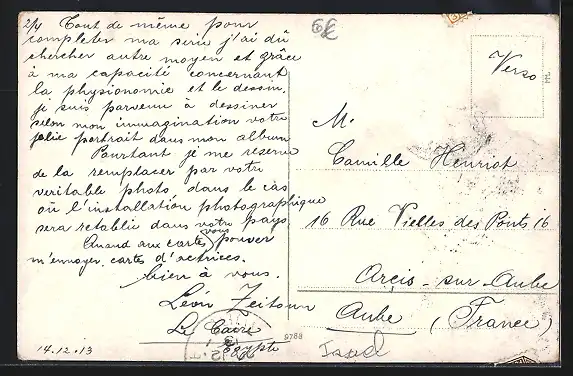 2/4 Tout de même pour
completer ma serie j'ai dû
chercher autre moyen et grâce
à ma capacité concernant
la physionomie et le dessin,
je suis parvenu à dessiner
selon mon immagination votre
jolie portrait dans mon album
Pourtant je me reserve
de la remplacer par votre
veritable photo, dans le cas
où l'installation photographique
sera retablie dans votre pays
Quand aux cartes vous pouvez
m'envoyer cartes d'actrices.
bien à vous.
Léon Zeitoun
Le Caire
Egypte
14.12.13
9788
Verso
M.
Camille Henriot
16 Rue Vielles des Ponts 16
Arcis-sur-Aube
Aube (France)